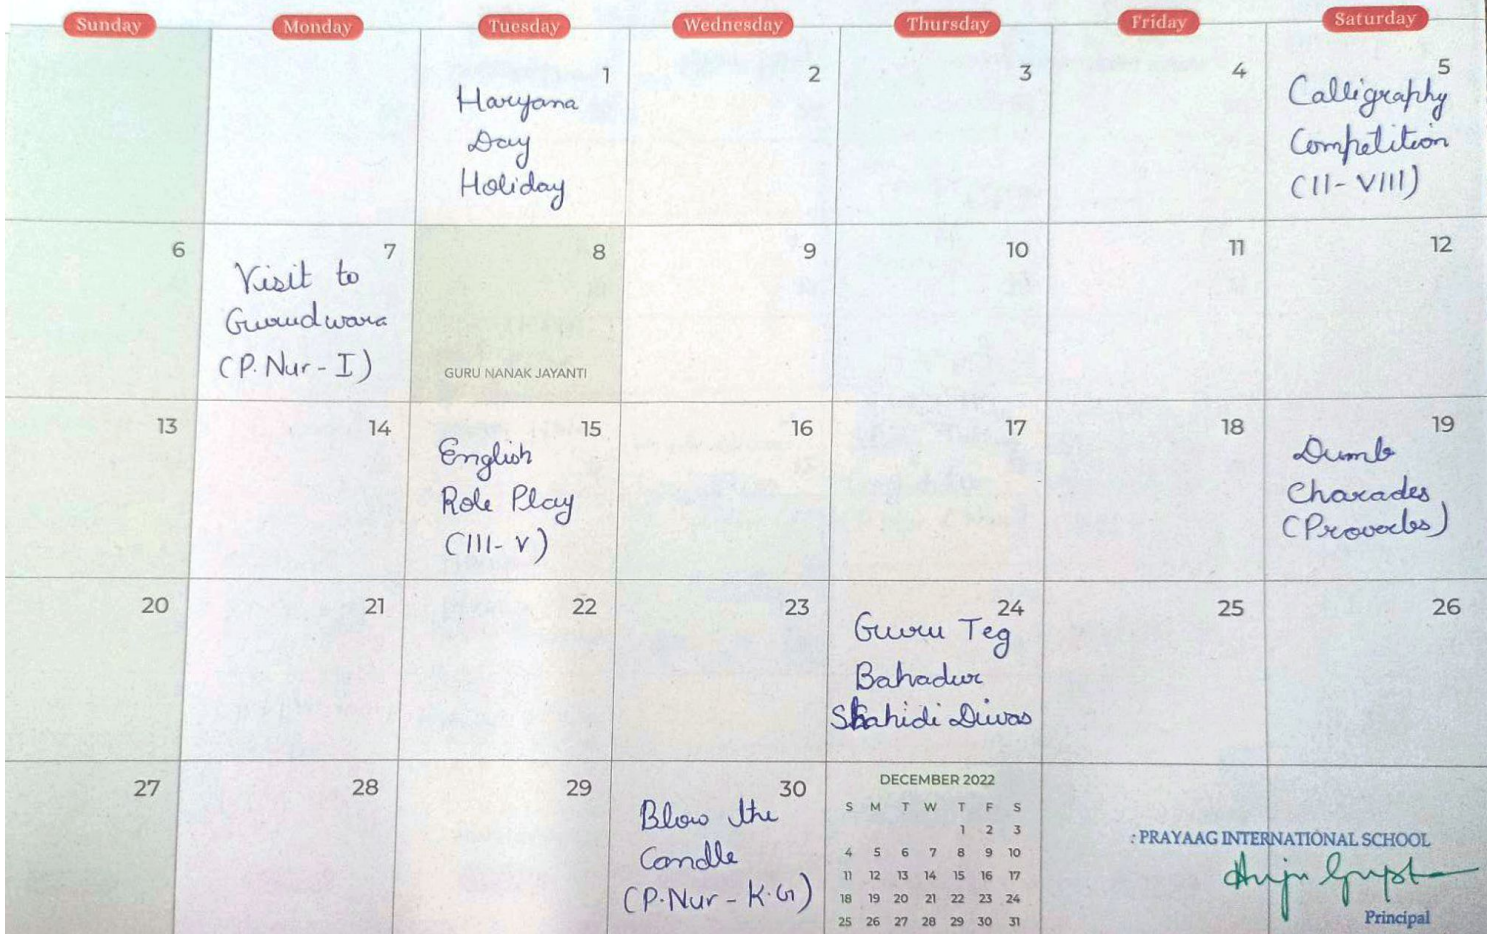 Sunday Monday Tuesday Wednesday Thursday Friday Saturday
1 2 3 4 5
Haryana
Day
Holiday
Calligraphy
Competition
(II- VIII)
6 7 8 9 10 11 12
Visit to
Gurudwara
(P. Nur - I)
GURU NANAK JAYANTI
13 14 15 16 17 18 19
English
Role Play
(III- V)
Dumb
Charades
(Proverbs)
20 21 22 23 24 25 26
Guru Teg
Bahadur
Shahidi Diwas
27 28 29 30
Blow the
Candle
(P.Nur - K.G)
DECEMBER 2022
S M T W T F S
1 2 3
4 5 6 7 8 9 10
11 12 13 14 15 16 17
18 19 20 21 22 23 24
25 26 27 28 29 30 31
: PRAYAAG INTERNATIONAL SCHOOL
Anju Gupta
Principal